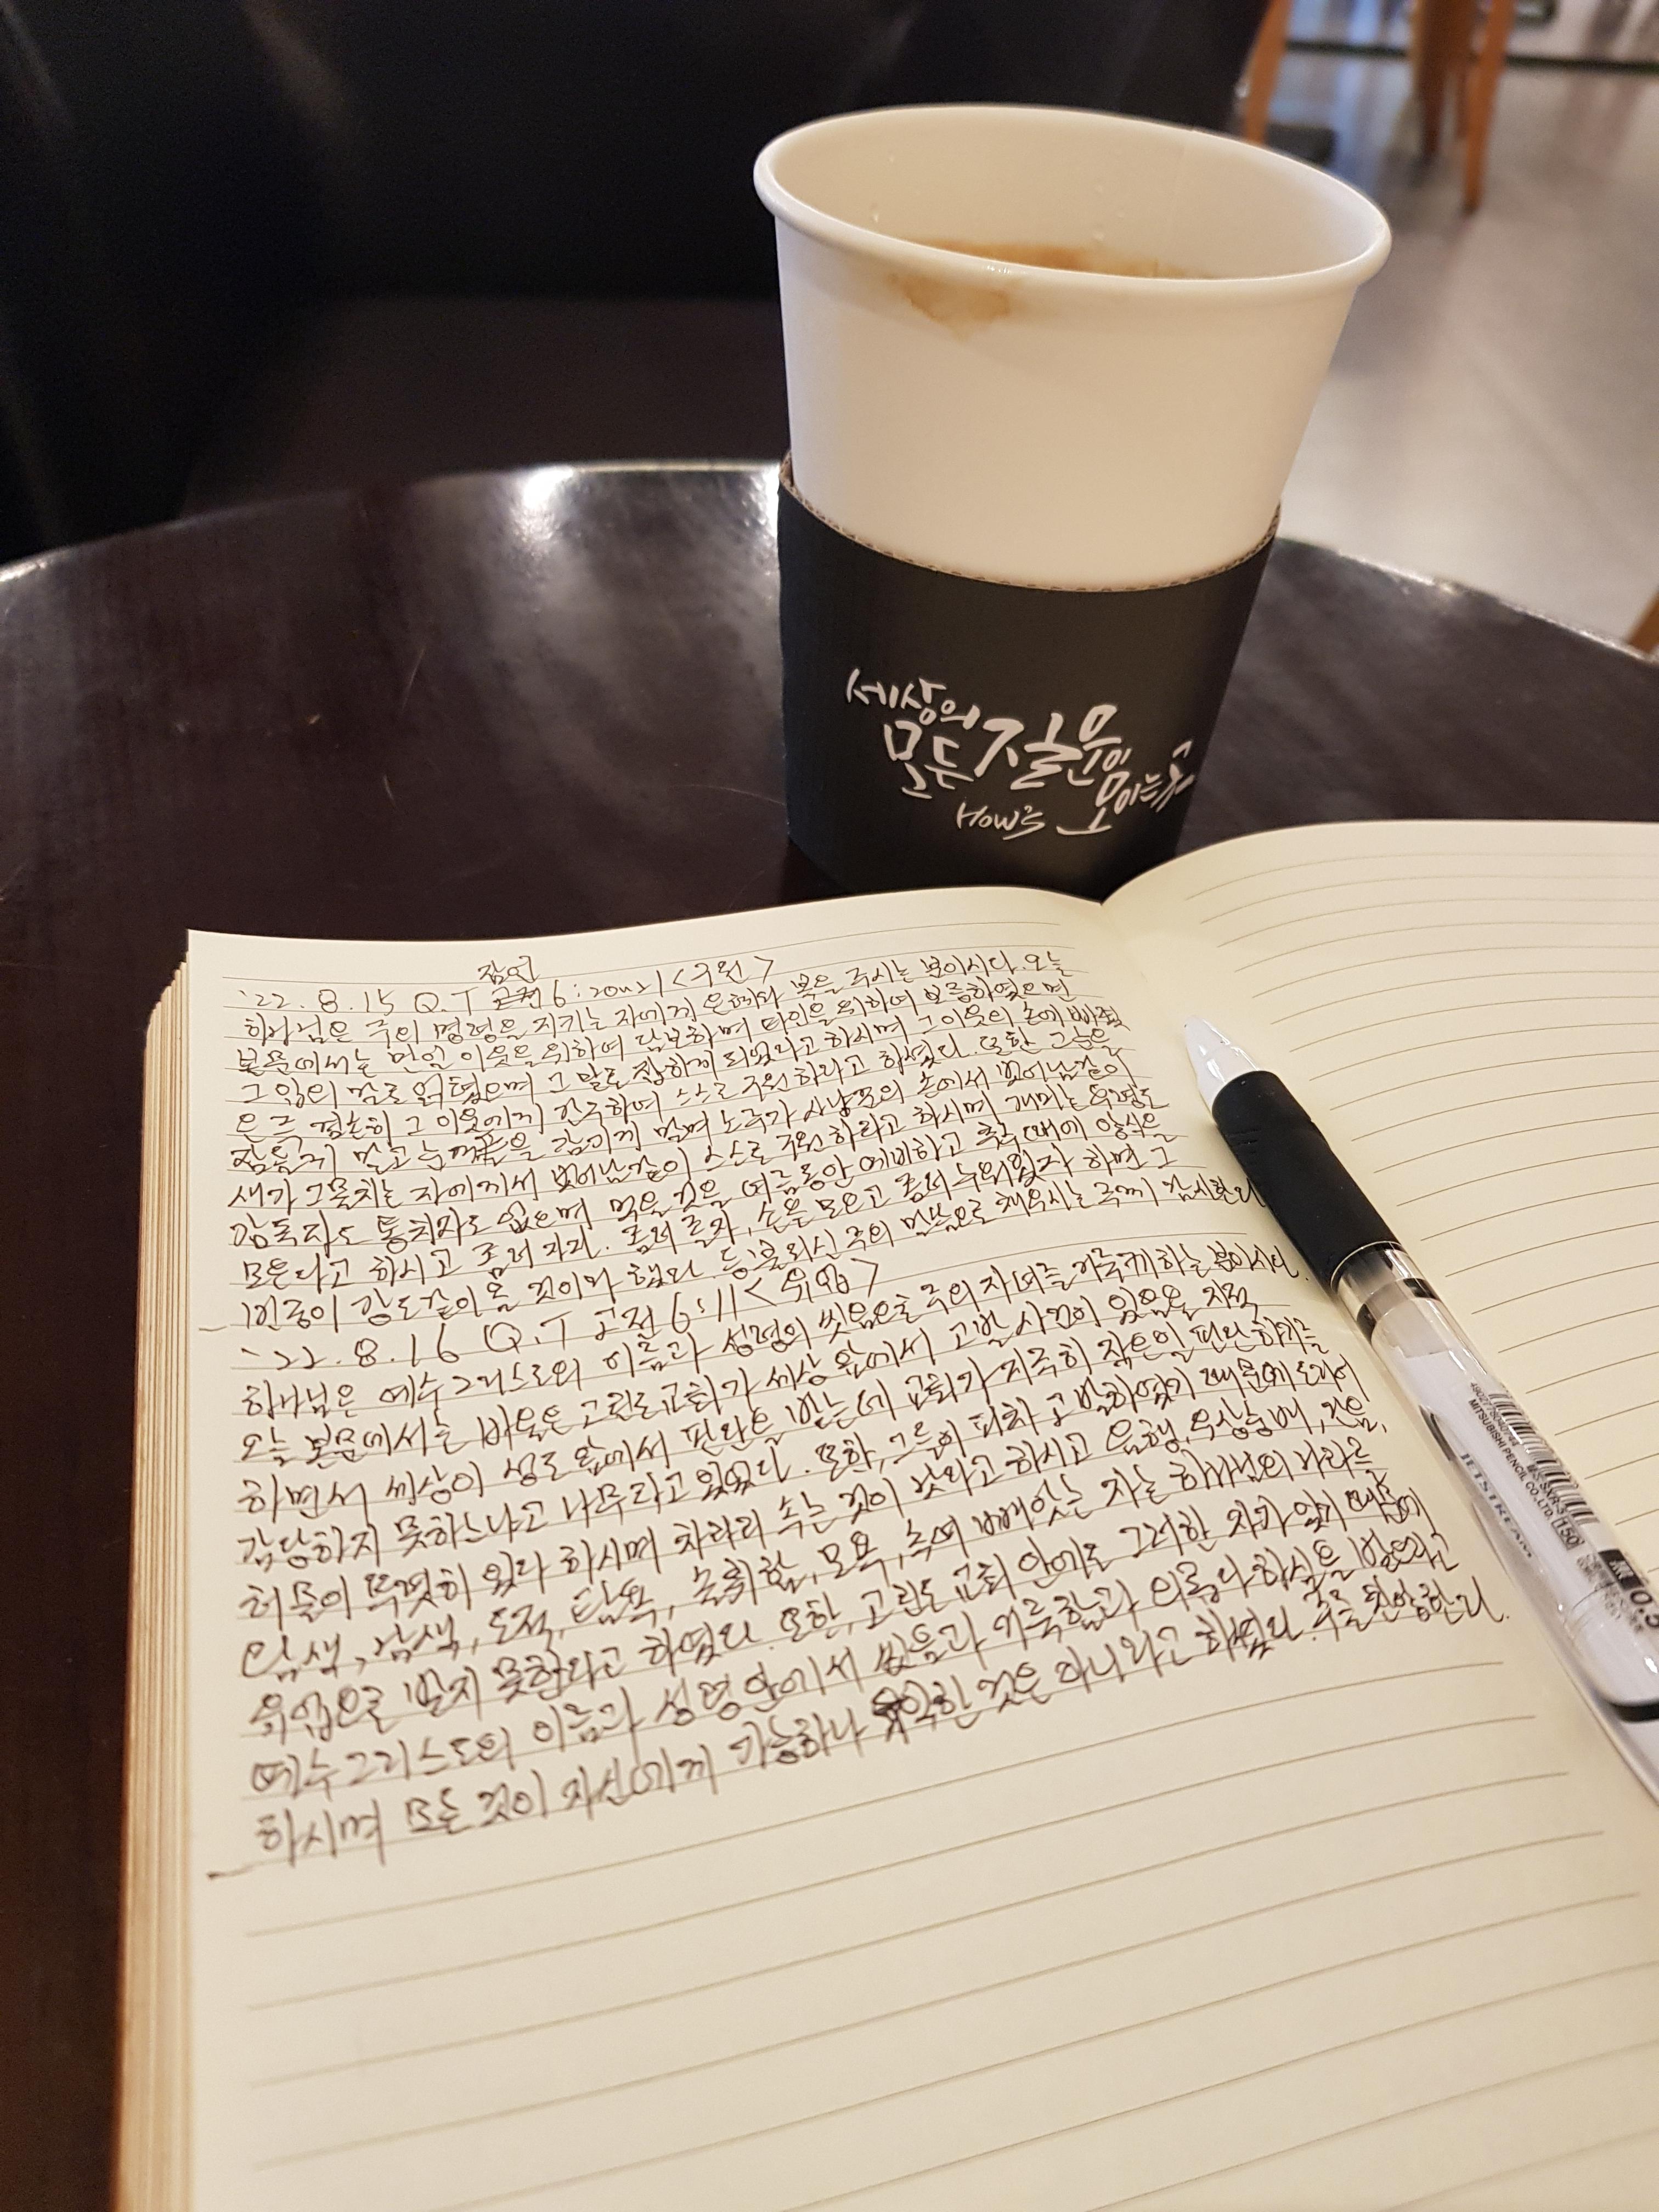 세상의
모든 젊음이
모이는 곳
How's
잠언
'22.8.15 Q.T 6: <구원>
하나님은 주의 명령을 지키는 자에게 은혜와 복을 주시는 분이시다. 오늘
본문에서는 만일 이웃을 위하여 담보하며 타인을 위하여 보증하였으면
그 입의 말로 얽혔으며 그 말로 잡히게 되었다고 하시며 그 이웃의 손에 빠졌
은 즉 겸손히 그 이웃에게 간구하여 스스로 구원하라고 하셨다. 또한 그들을
잠들게 말고 눈꺼풀을 감기게 말며 노루가 사냥꾼의 손에서 벗어남같이
새가 그물치는 자에게서 벗어남같이 스스로 구원하라고 하시며 개미는 두령도
감독자도 통치자도 없으며 먹을 것을 여름동안 예비하고 추수 때에 양식을
모은다고 하시고 좀더 자자, 좀더 졸자, 손을 모으고 좀더 누워있자 하면 그
빈궁이 강도같이 올 것이며 했다. 주의 말씀으로 채우시는 주께 감사한다
'22.8.16 Q.T 고전 6:11 <유업>
하나님은 예수그리스도의 이름과 성령의 씻음으로 주의 자녀를 거룩케하는 분이시다.
오늘 본문에서는 바울은 고린도교회가 세상 앞에서 고발 사건이 있음을 지적
하면서 세상이 성도 앞에서 판단을 받는데 교회가 지극히 작은일 판단하기를
감당하지 못하느냐고 나무라고 있었다. 또한, 그들이 피차 고발하였기 때문에 도리어
허물이 뚜렷히 있다 하시며 차라리 속는 것이 낫다고 하시고 음행, 우상숭배, 간음,
탐색, 남색, 도적, 탐욕, 술취함, 모욕, 속여 빼앗는 자는 하나님의 나라를
유업으로 받지 못한다고 하였다. 또한, 고린도 교회 안에도 그러한 자가 있기 때문에
예수그리스도의 이름과 성령 안에서 씻음과 거룩함과 의롭다 하심을 받았다고
하시며 모든 것이 자신에게 가능하나 유익한 것은 아니라고 하셨다. 주를 찬양한다.
MITSUBISHI PENCIL CO.,LTD.
150
JETSTREAM
0.5